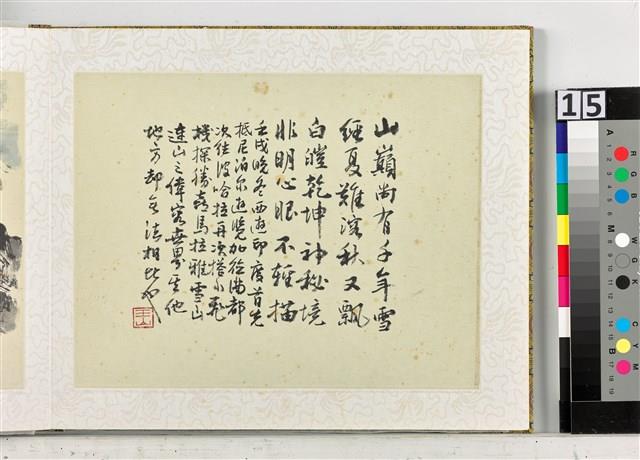 山巔尚有千年雪
經夏難溶秋又飄
白皚乾坤神秘境
非明心眼不輕描
壬戌晚冬西遊印度首先
抵尼泊尔遊覽加德滿都
次往波哈拉再次搭小飛
機探勝喜馬拉雅雪山
連山之偉客世界其他
地方却無法相比也
15
A
R
G
B
M
W
G
K
B
C
Y
M